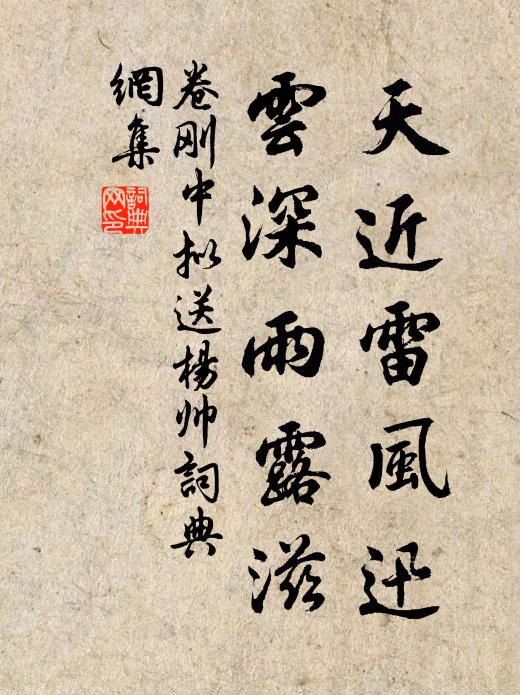 天近雷風迅
雲深雨露滋
卷剛中拟送楊帅詞典
網集
詞典
网印